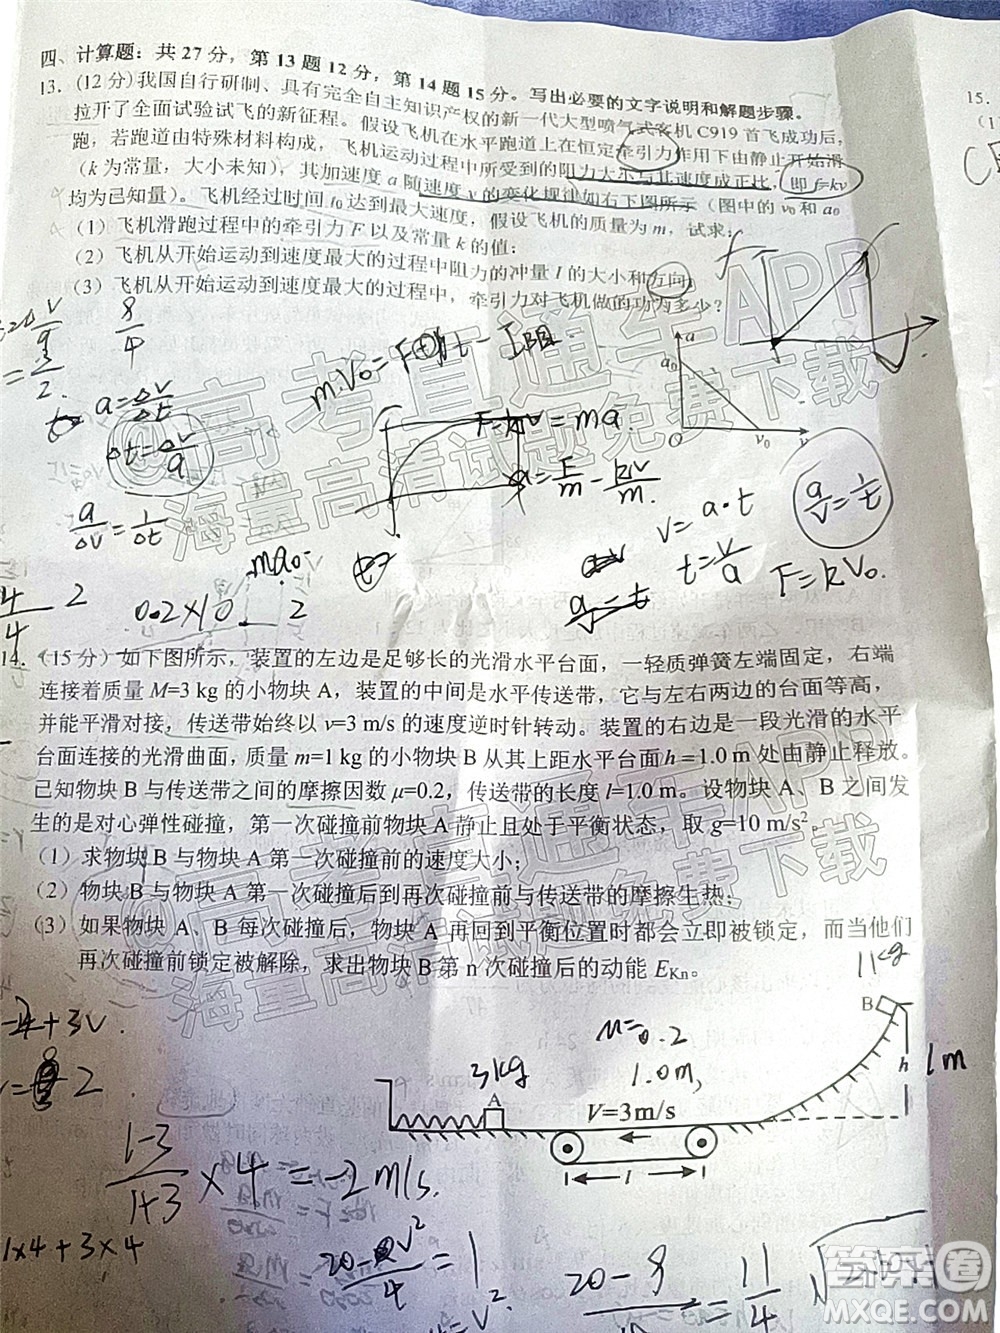 四、计算题：共27分，第13题12分，第14题15分。写出必要的文字说明和解题步骤。
13．(12分)我国自行研制、具有完全自主知识产权的新一代大型喷气式客机C919首飞成功后，
拉开了全面试验试飞的新征程。假设飞机在水平跑道上在恒定牵引力作用下由静止开始滑
跑，若跑道由特殊材料构成，飞机运动过程中所受到的阻力大小与其速度成正比，即f=kv
（k为常量，大小未知），其加速度a随速度v的变化规律如右下图所示（图中的v₀和a₀
均为已知量）。飞机经过时间t₀达到最大速度，假设飞机的质量为m，试求：
（1）飞机滑跑过程中的牵引力F以及常量k的值；
（2）飞机从开始运动到速度最大的过程中阻力的冲量I的大小和方向；
（3）飞机从开始运动到速度最大的过程中，牵引力对飞机做的功为多少？
a
a₀
O
v₀
v
a=Δv/Δt
F-kv=ma.
a=F/m-kv/m.
v=a·t
t=v/a
a/v=1/t
F=kV₀.
a/Δv=1/Δt
ma₀=
0.2×10
2
14．（15分）如下图所示，装置的左边是足够长的光滑水平台面，一轻质弹簧左端固定，右端
连接着质量M=3 kg的小物块A，装置的中间是水平传送带，它与左右两边的台面等高，
并能平滑对接，传送带始终以v=3 m/s的速度逆时针转动。装置的右边是一段光滑的水平
台面连接的光滑曲面，质量m=1 kg的小物块B从其上距水平台面h=1.0 m处由静止释放。
已知物块B与传送带之间的摩擦因数μ=0.2，传送带的长度l=1.0 m。设物块A、B之间发
生的是对心弹性碰撞，第一次碰撞前物块A静止且处于平衡状态，取g=10 m/s²。
（1）求物块B与物块A第一次碰撞前的速度大小；
（2）物块B与物块A第一次碰撞后到再次碰撞前与传送带的摩擦生热；
（3）如果物块A、B每次碰撞后，物块A再回到平衡位置时都会立即被锁定，而当他们
再次碰撞前锁定被解除，求出物块B第n次碰撞后的动能E_Kn。
1kg
B
h
1m
μ=0.2
1.0m,
3kg
A
V=3m/s
l
(1-3)/(1+3)×4=-2m/s.
1×4+3×4
15．
高考直通车APP
海量高清试题免费下载
答案圈
MXQE.COM